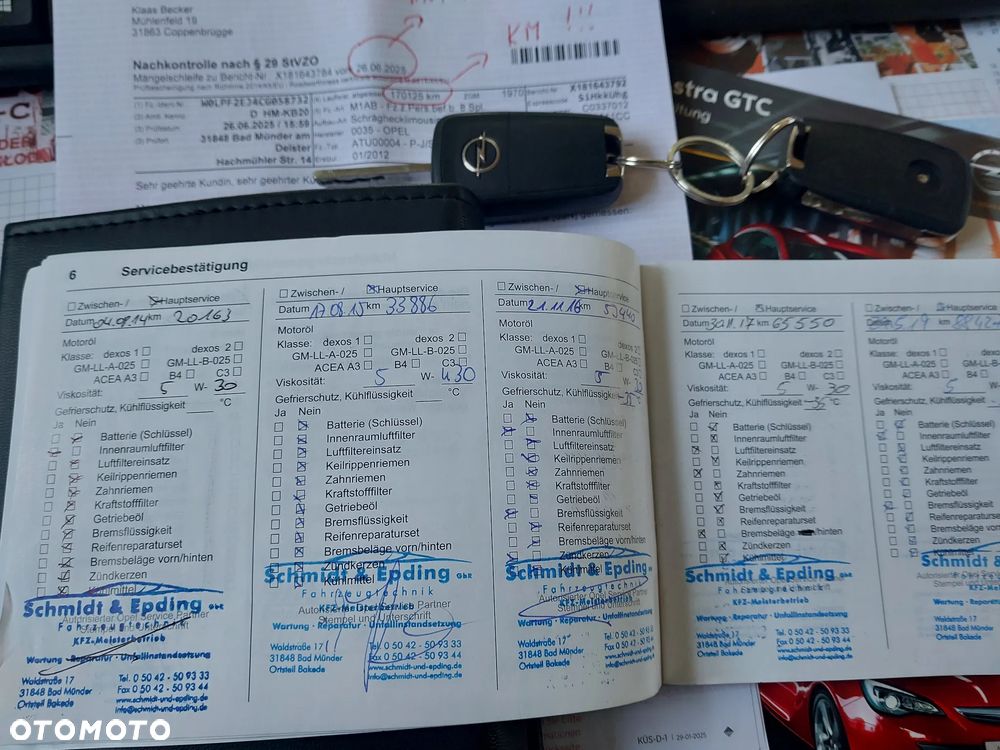 Klaas Becker
Mühlenfeld 19
31863 Coppenbrügge
KM !!!
Nachkontrolle nach § 29 StVZO
Mängelschleife zu Bericht-Nr. X181643784 vom 26.06.2025
170125 km
1970
X181643792
W0LPF2EJ4CG058732
D HM-KB20
26.06.2025 / 15:59
31848 Bad Münder am
Deister
Hachmühler Str. 14
M1AB - Fz.z.Pers.bef.b. 8 Spl.
Schräghecklimousine
0035 - OPEL
ATU00004 - P-J/S
01/2012
C0337012
Sehr geehrte Kundin, sehr geehrter
stra GTC
6 Servicebestätigung
Zwischen- / Hauptservice
Datum 04.09.14 km 20163
Motoröl
Klasse: dexos 1 dexos 2
GM-LL-A-025 GM-LL-B-025
ACEA A3 B4 C3
Viskosität: 5 W- 30
Gefrierschutz, Kühlflüssigkeit °C
Ja Nein
Batterie (Schlüssel)
Innenraumluftfilter
Luftfiltereinsatz
Keilrippenriemen
Zahnriemen
Kraftstofffilter
Getriebeöl
Bremsflüssigkeit
Reifenreparaturset
Bremsbeläge vorn/hinten
Zündkerzen
Kühlmittel
Schmidt & Epding GbR
Fahrzeugtechnik
Autorisierter Opel Service Partner
Stempel und Unterschrift
KFZ-Meisterbetrieb
Wartung · Reparatur · Unfallinstandsetzung
Waldstraße 17 Tel. 0 50 42 - 50 93 33
31848 Bad Münder Fax 0 50 42 - 50 93 44
Ortsteil Bakede www.schmidt-und-epding.de
info@schmidt-und-epding.de
Zwischen- / Hauptservice
Datum 17.08.15 km 33886
Motoröl
Klasse: dexos 1 dexos 2
GM-LL-A-025 GM-LL-B-025
ACEA A3 B4 C3
Viskosität: 5 W- 30
Gefrierschutz, Kühlflüssigkeit °C
Ja Nein
Batterie (Schlüssel)
Innenraumluftfilter
Luftfiltereinsatz
Keilrippenriemen
Zahnriemen
Kraftstofffilter
Getriebeöl
Bremsflüssigkeit
Reifenreparaturset
Bremsbeläge vorn/hinten
Zündkerzen
Kühlmittel
Schmidt & Epding GbR
Fahrzeugtechnik
KFZ-Meisterbetrieb Partner
Stempel und Unterschrift
Wartung · Reparatur · Unfallinstandsetzung
Waldstraße 17 Tel. 0 50 42 - 50 93 33
31848 Bad Münder Fax 0 50 42 - 50 93 44
Ortsteil Bakede www.schmidt-und-epding.de
info@schmidt-und-epding.de
Zwischen- / Hauptservice
Datum 21.11.16 km
Motoröl
Klasse: dexos 1 dexos 2
GM-LL-A-025 GM-LL-B-025
ACEA A3 B4 C3
Viskosität: 5 W-
Gefrierschutz, Kühlflüssigkeit -35 °C
Ja Nein
Batterie (Schlüssel)
Innenraumluftfilter
Luftfiltereinsatz
Keilrippenriemen
Zahnriemen
Kraftstofffilter
Getriebeöl
Bremsflüssigkeit
Reifenreparaturset
Bremsbeläge vorn/hinten
Zündkerzen
Schmidt & Epding GbR
Fahrzeugtechnik
KFZ-Meisterbetrieb
Wartung · Reparatur · Unfallinstandsetzung
Waldstraße 17 Tel. 0 50 42 - 50 93 33
31848 Bad Münder Fax 0 50 42 - 50 93 44
Ortsteil Bakede www.schmidt-und-epding.de
info@schmidt-und-epding.de
Zwischen- / Hauptservice
Datum 30.11.17 km 65550
Motoröl
Klasse: dexos 1 dexos 2
GM-LL-A-025 GM-LL-B-025
ACEA A3 B4 C3
Viskosität: 5 W- 30
Gefrierschutz, Kühlflüssigkeit -35 °C
Ja Nein
Batterie (Schlüssel)
Innenraumluftfilter
Luftfiltereinsatz
Keilrippenriemen
Zahnriemen
Kraftstofffilter
Getriebeöl
Bremsflüssigkeit
Reifenreparaturset
Bremsbeläge vorn/hinten
Zündkerzen
Kühlmittel
Schmidt & Epding GbR
Fahrzeugtechnik
KFZ-Meisterbetrieb
Wartung · Reparatur · Unfallinstandsetzung
Waldstraße 17 Tel. 0 50 42 - 50 93 33
31848 Bad Münder Fax 0 50 42 - 50 93 44
Ortsteil Bakede www.schmidt-und-epding.de
info@schmidt-und-epding.de
Zwischen- / Hauptservice
Motoröl
Klasse: dexos 1 dexos 2
GM-LL-A-025
ACEA A3 B4
Viskosität: 5 W-
Gefrierschutz, Kühlflüssigkeit
Ja Nein
Batterie (Schlüssel)
Innenraumluftfilter
Luftfiltereinsatz
Keilrippenriemen
Zahnriemen
Kraftstofffilter
Getriebeöl
Bremsflüssigkeit
Reifenreparaturset
Bremsbeläge vorn/hinten
Zündkerzen
Schmidt & Epding
Fahrzeugtechnik
KFZ-Meisterbetrieb
Waldstraße 17
31848 Bad Münder
Ortsteil Bakede
KÜS-D-1 | 29-01-2025
OTOMOTO